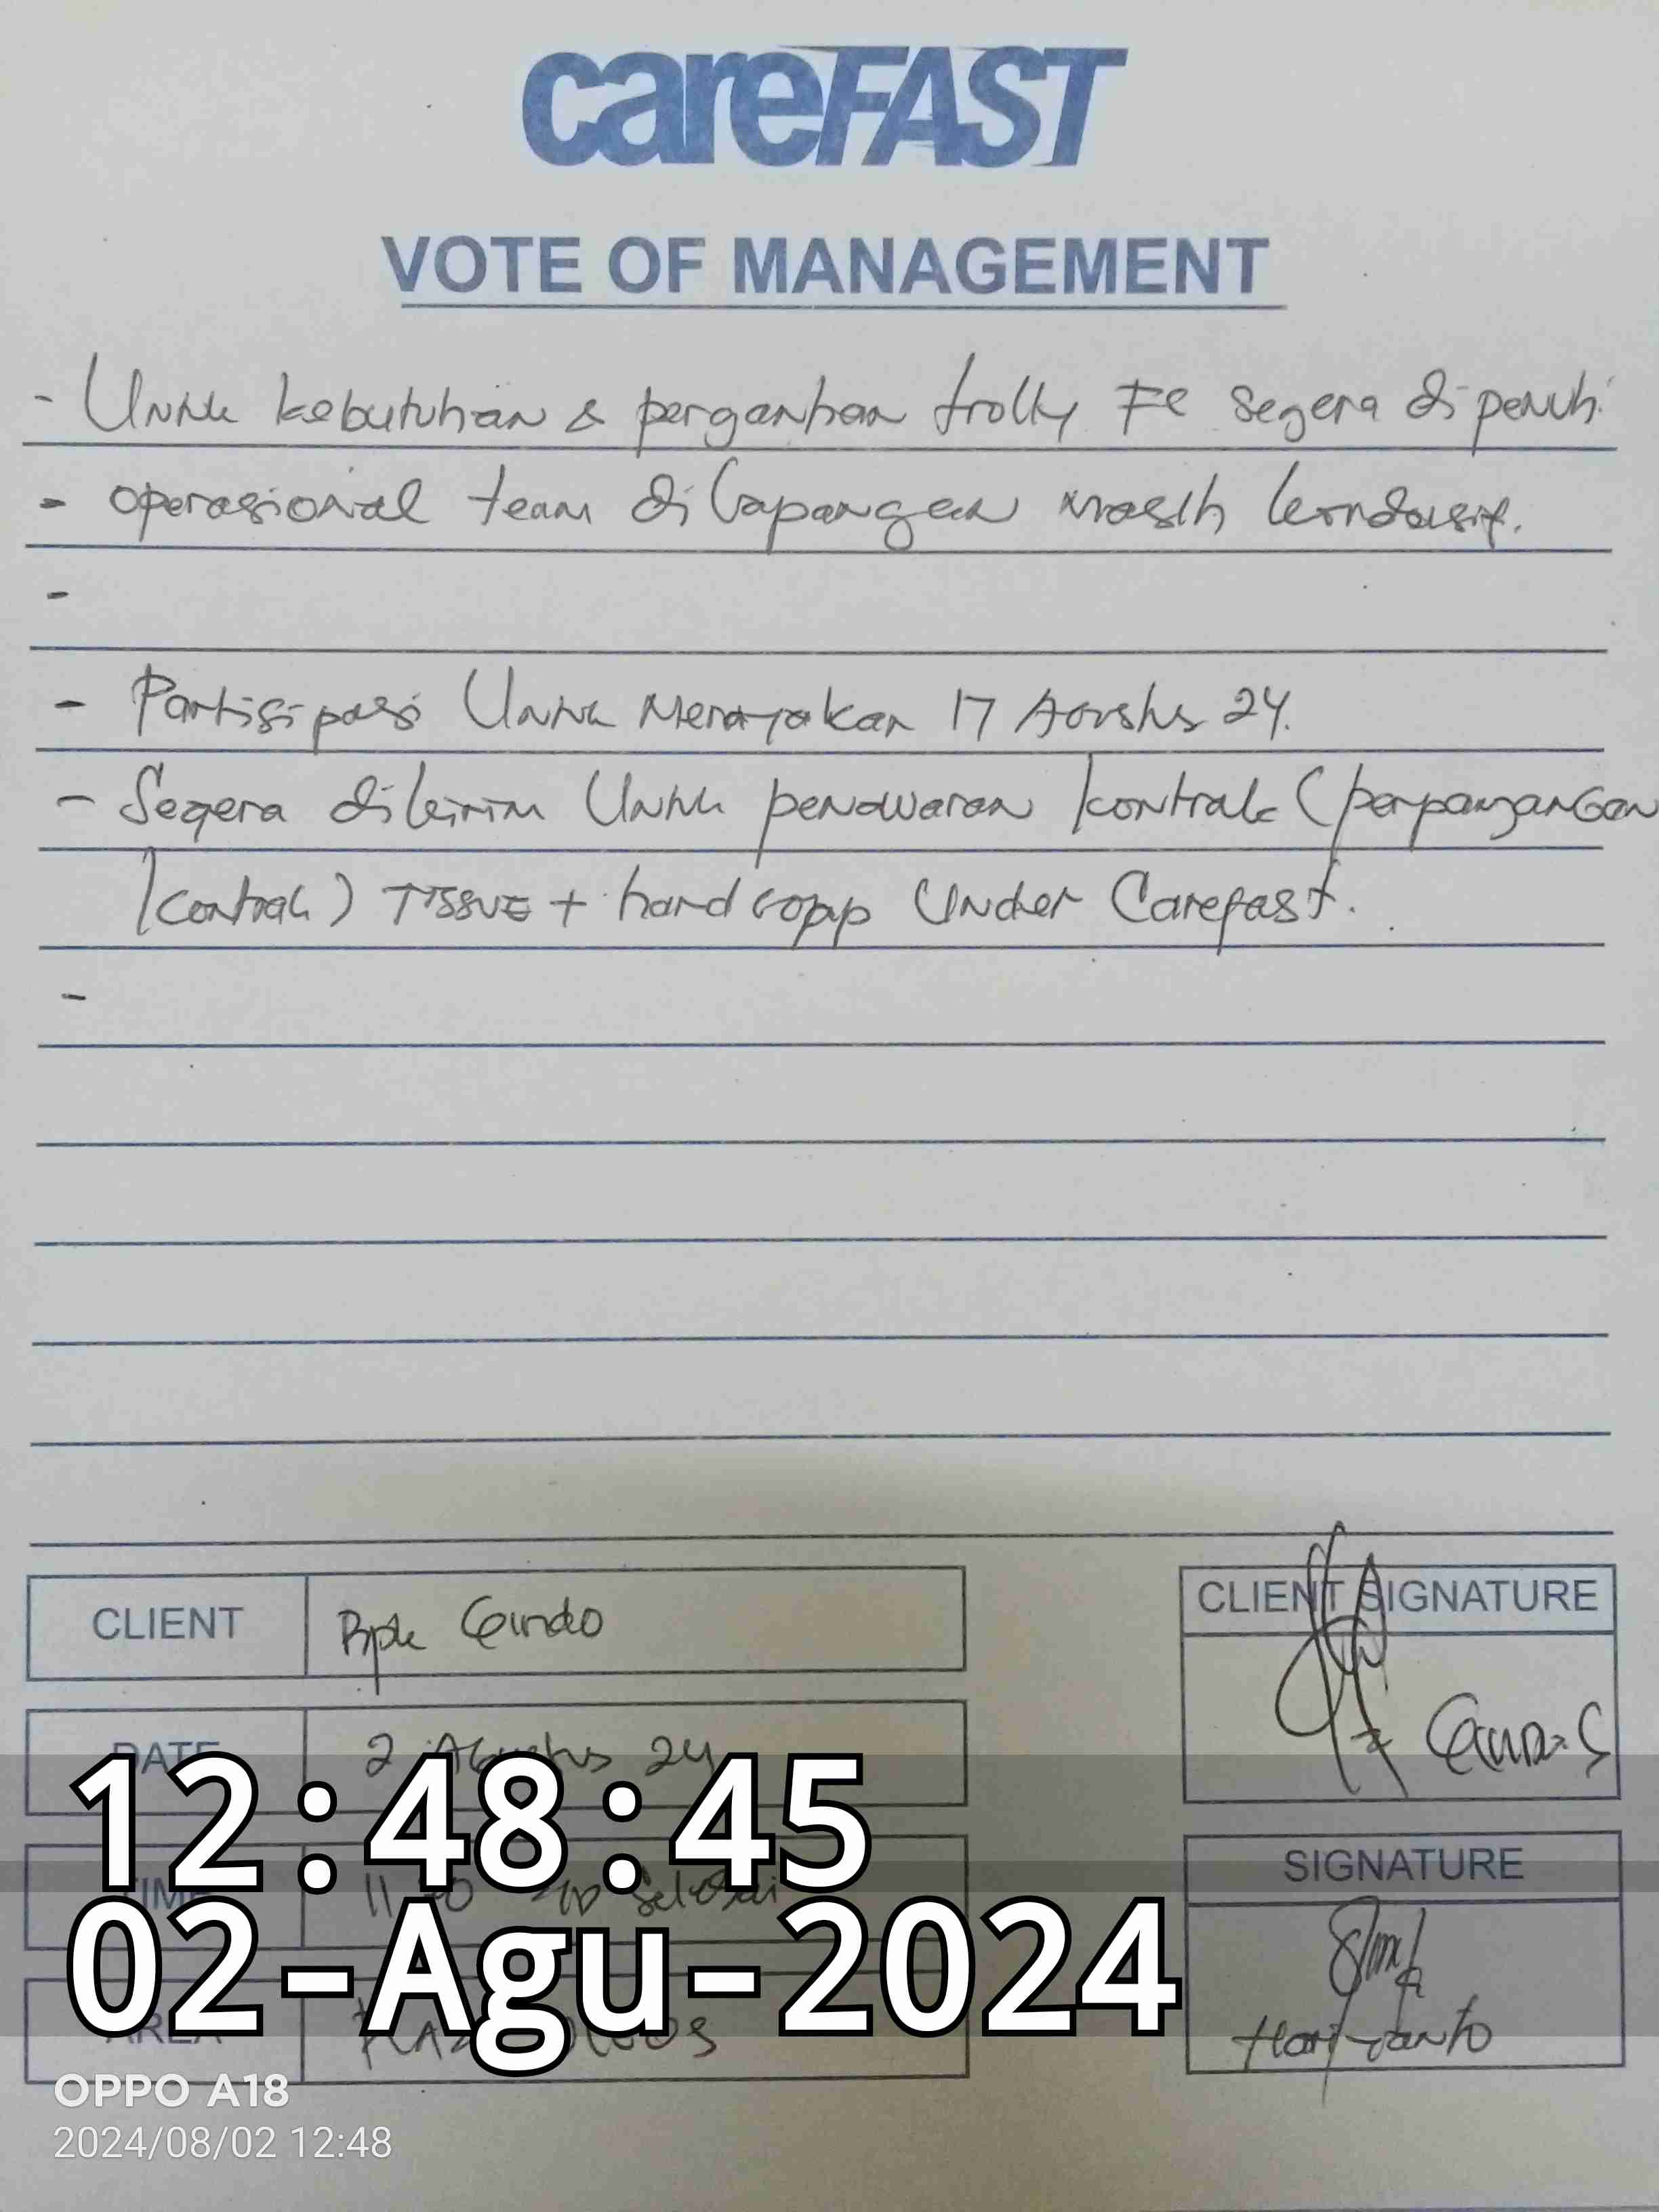 careFAST
VOTE OF MANAGEMENT
- Untuk kebutuhan & pergantian trolly FC segera dipenuhi
- operasional team di lapangan masih kondusif.
-
- Partisipasi Untuk Merayakan 17 Agustus 24.
- Segera dikirim Untuk penawaran kontrak (perpanjangan
kontrak) TISSUE + hard copy Under Carefast.
-
CLIENT
Bpk Gundo
CLIENT SIGNATURE
DATE
2 Agustus 24
12:48:45
TIME
Selesai
SIGNATURE
02-Agu-2024
AREA
Hariyanto
OPPO A18
2024/08/02 12:48